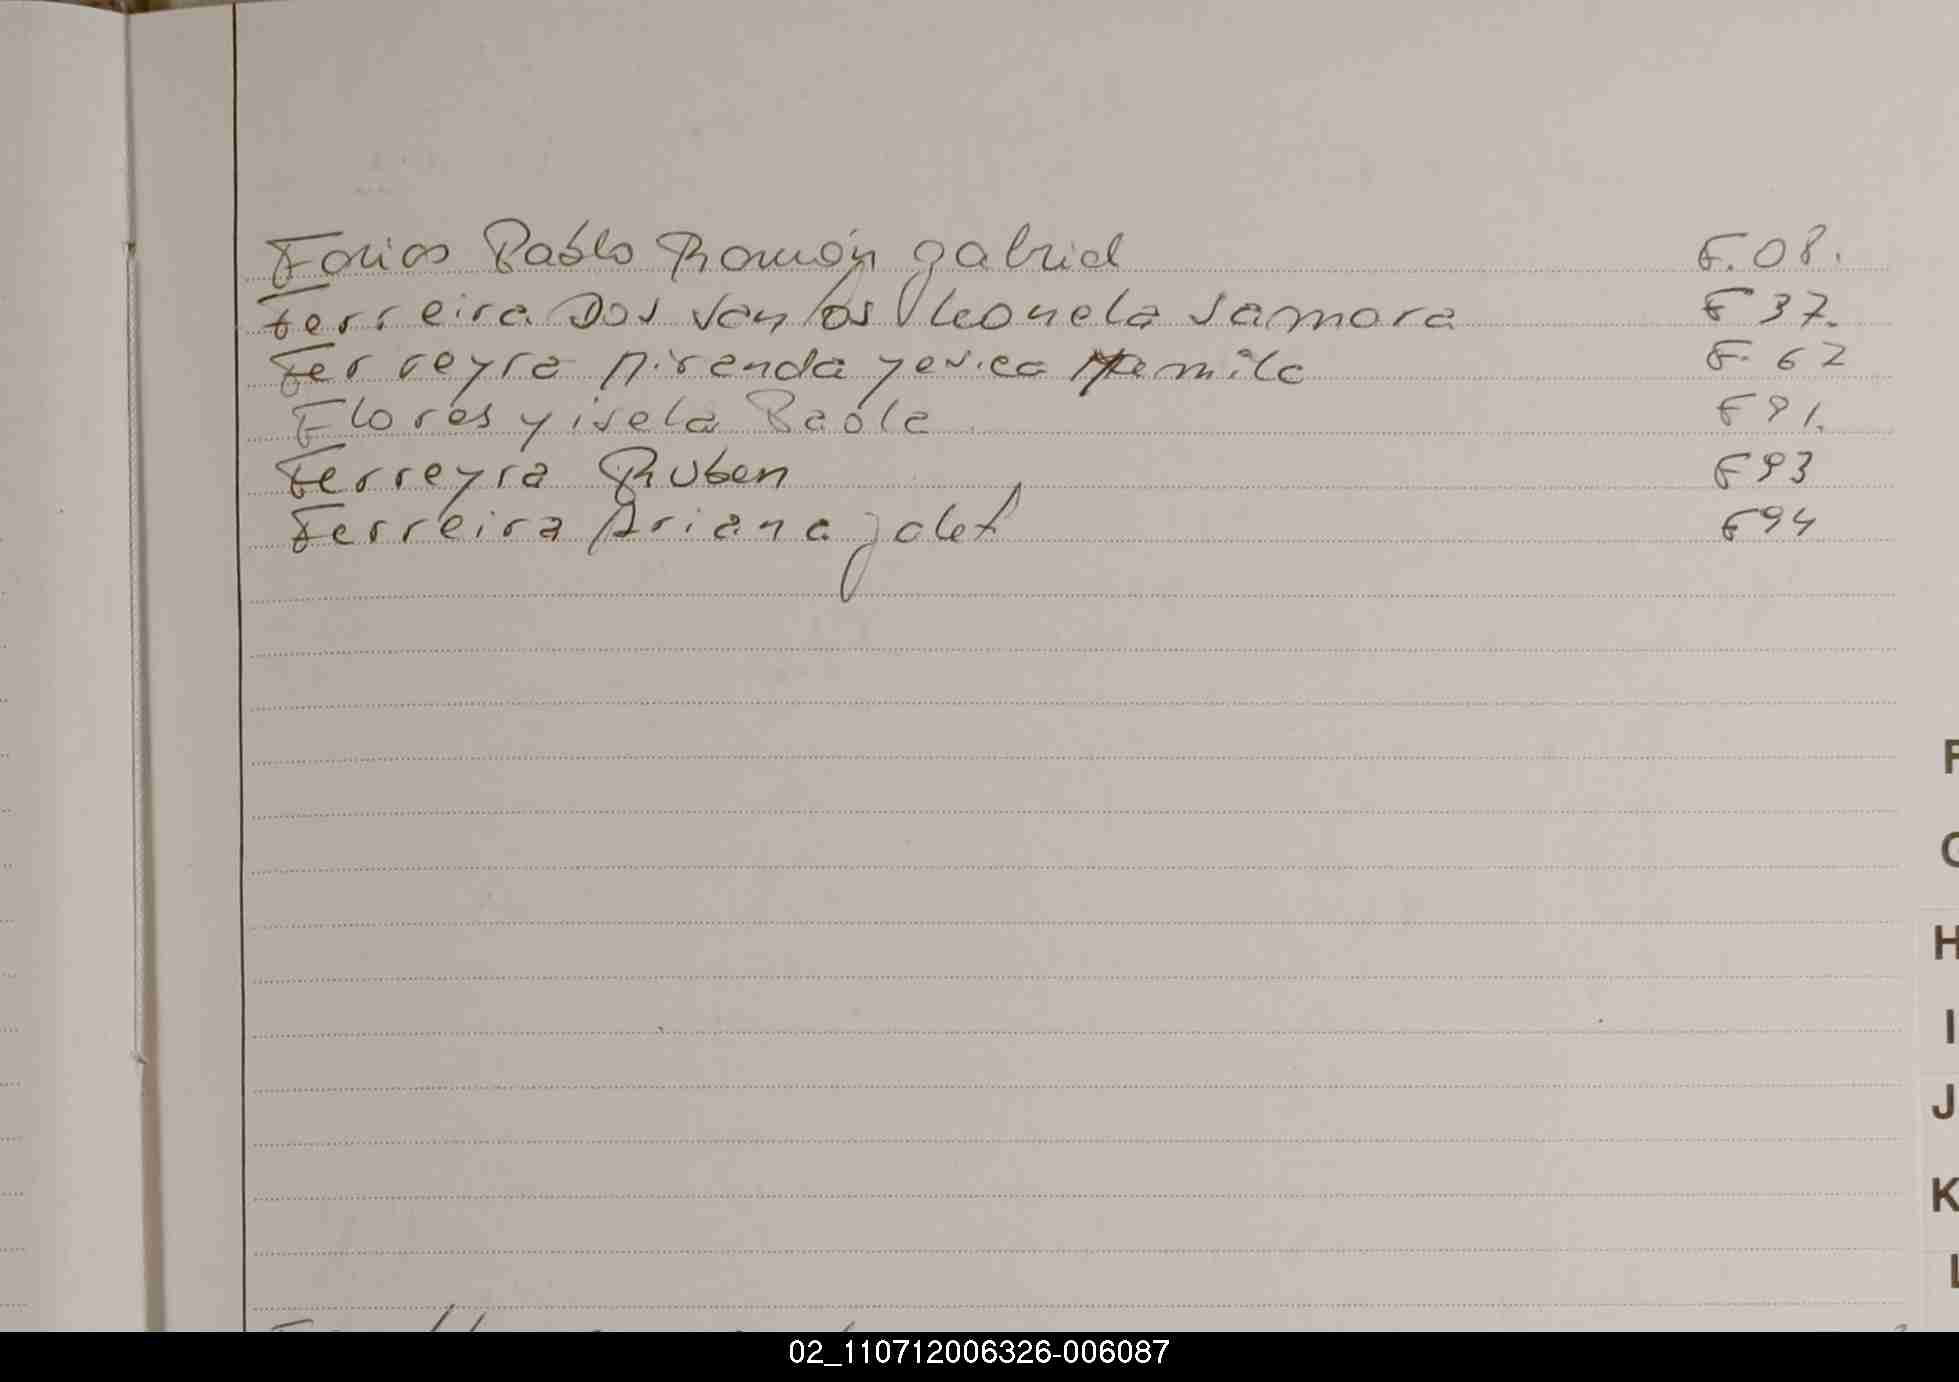 Farias Pablo Ramón gabriel F. 08.
Ferreira Dos Santos Leonela Samora F 37.
Ferreyra Miranda yesica Yamila F. 62
Flores yisela Paola F 91.
Ferreyra Ruben F 93
Ferreira Ariana F 94
F
G
H
I
J
K
L
02_110712006326-006087